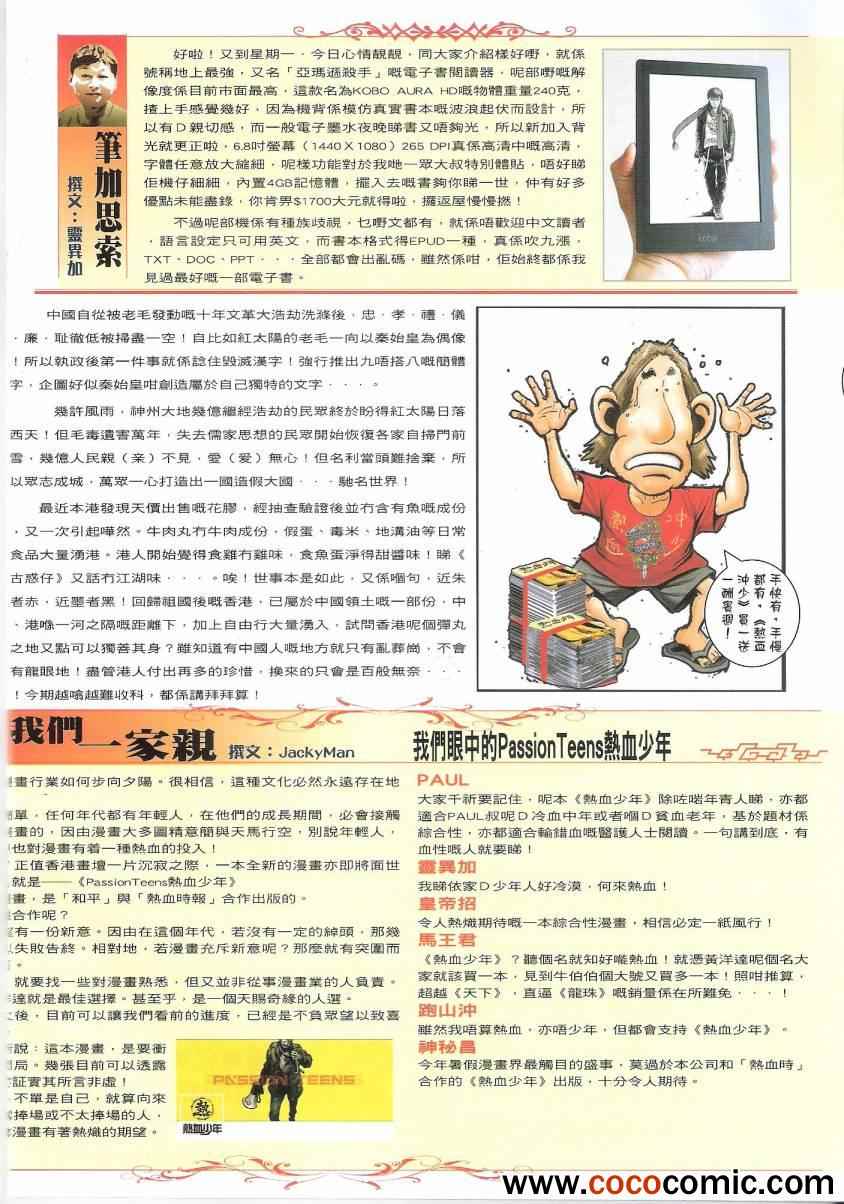 筆加思索
撰文：靈異加
好啦！又到星期一．今日心情靚靚，同大家介紹樣好嘢，就係
號稱地上最強，又名「亞瑪遜殺手」嘅電子書閱讀器，呢部嘢嘅解
像度係目前市面最高，這款名為KOBO AURA HD嘅物體重量240克，
揸上手感覺幾好，因為機背係模仿真實書本嘅波浪起伏而設計，所
以有D親切感，而一般電子墨水夜晚睇書又唔夠光，所以新加入背
光就更正啦，6.8吋螢幕（1440X1080）265 DPI真係高清中嘅高清，
字體任意放大縮細，呢樣功能對於我哋一眾大叔特別體貼，唔好睇
佢機仔細細，內置4GB記憶體，擺入去嘅書夠你睇一世，仲有好多
優點未能盡錄，你肯畀$1700大元就得啦，攞返屋慢慢撚！
不過呢部機係有種族歧視，乜嘢文都有，就係唔歡迎中文讀者
，語言設定只可用英文，而書本格式得EPUD一種，真係吹九漲，
TXT、DOC、PPT．．．全部都會出亂碼，雖然係咁，佢始終都係我
見過最好嘅一部電子書。
kobo
中國自從被老毛發動嘅十年文革大浩劫洗滌後，忠．孝．禮．儀
．廉．恥徹低被掃盡一空！自比如紅太陽的老毛一向以秦始皇為偶像
！所以執政後第一件事就係諗住毀滅漢字！強行推出九唔搭八嘅簡體
字，企圖好似秦始皇咁創造屬於自己獨特的文字．．．。
幾許風雨，神州大地幾億繼經浩劫的民眾終於盼得紅太陽日落
西天！但毛毒遺害萬年，失去儒家思想的民眾開始恢復各家自掃門前
雪，幾億人民親（亲）不見，愛（爱）無心！但名利當頭難捨棄，所
以眾志成城，萬眾一心打造出一國造假大國．．．馳名世界！
最近本港發現天價出售嘅花膠，經抽查驗證後並冇含有魚嘅成份
，又一次引起嘩然。牛肉丸冇牛肉成份，假蛋、毒米、地溝油等日常
食品大量湧港。港人開始覺得食雞冇雞味，食魚蛋淨得甜醬味！睇《
古惑仔》又話冇江湖味．．．。唉！世事本是如此，又係嗰句，近朱
者赤，近墨者黑！回歸祖國後嘅香港，已屬於中國領土嘅一部份，中
、港喺一河之隔嘅距離下，加上自由行大量湧入，試問香港呢個彈丸
之地又點可以獨善其身？雖知道有中國人嘅地方就只有亂葬崗，不會
有龍眼地！盡管港人付出再多的珍惜，換來的只會是百般無奈．．．
！今期越噏越難收科，都係講拜拜算！
我們一家親
撰文：JackyMan
畫行業如何步向夕陽。很相信，這種文化必然永遠存在地
單，任何年代都有年輕人，在他們的成長期間，必會接觸
畫的，因由漫畫大多圖精意簡與天馬行空，別說年輕人，
也對漫畫有着一種熱血的投入！
正值香港畫壇一片沉寂之際，一本全新的漫畫亦即將面世
就是──《PassionTeens熱血少年》
畫，是「和平」與「熱血時報」合作出版的。
合作呢？
有一份新意。因由在這個年代，若沒有一定的綽頭，那幾
失敗告終。相對地，若漫畫充斥新意呢？那麼就有突圍而
。
，就要找一些對漫畫熟悉，但又並非從事漫畫業的人負責。
達就是最佳選擇。甚至乎，是一個天賜奇緣的人選。
之後，目前可以讓我們看前的進度，已經是不負眾望以致喜
說：這本漫畫，是要衝
局。幾張目前可以透露
証實其所言非虛！
不單是自己，就算向來
捧場或不太捧場的人，
漫畫有著熱熾的期望。
PASSION TEENS
熱
熱血少年
我們眼中的PassionTeens熱血少年
PAUL
大家千祈要記住，呢本《熱血少年》除咗啱年青人睇，亦都
適合PAUL叔呢D冷血中年或者嗰D貧血老年，基於題材係
綜合性，亦都適合輸錯血嘅醫護人士閱讀。一句講到底，有
血性嘅人就要睇！
靈異加
我睇依家D少年人好冷漠，何來熱血！
皇帝招
令人熱熾期待嘅一本綜合性漫畫，相信必定一紙風行！
馬王君
《熱血少年》？聽個名就知好嘥熱血！就憑黃洋達呢個名大
家就該買一本，見到牛伯伯個大號又買多一本！照咁推算，
超越《天下》，直逼《龍珠》嘅銷量係在所難免．．．！
跑山沖
雖然我唔算熱血，亦唔少年，但都會支持《熱血少年》。
神秘昌
今年暑假漫畫界最觸目的盛事，莫過於本公司和「熱血時」
合作的《熱血少年》出版，十分令人期待。
www.cococomic.com